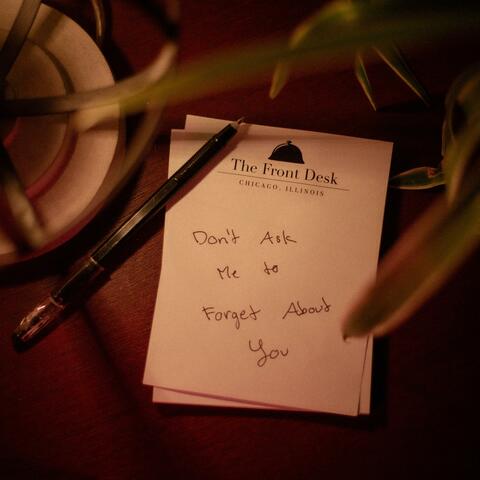 The Front Desk
CHICAGO, ILLINOIS
Don't Ask
Me to
Forget About
You